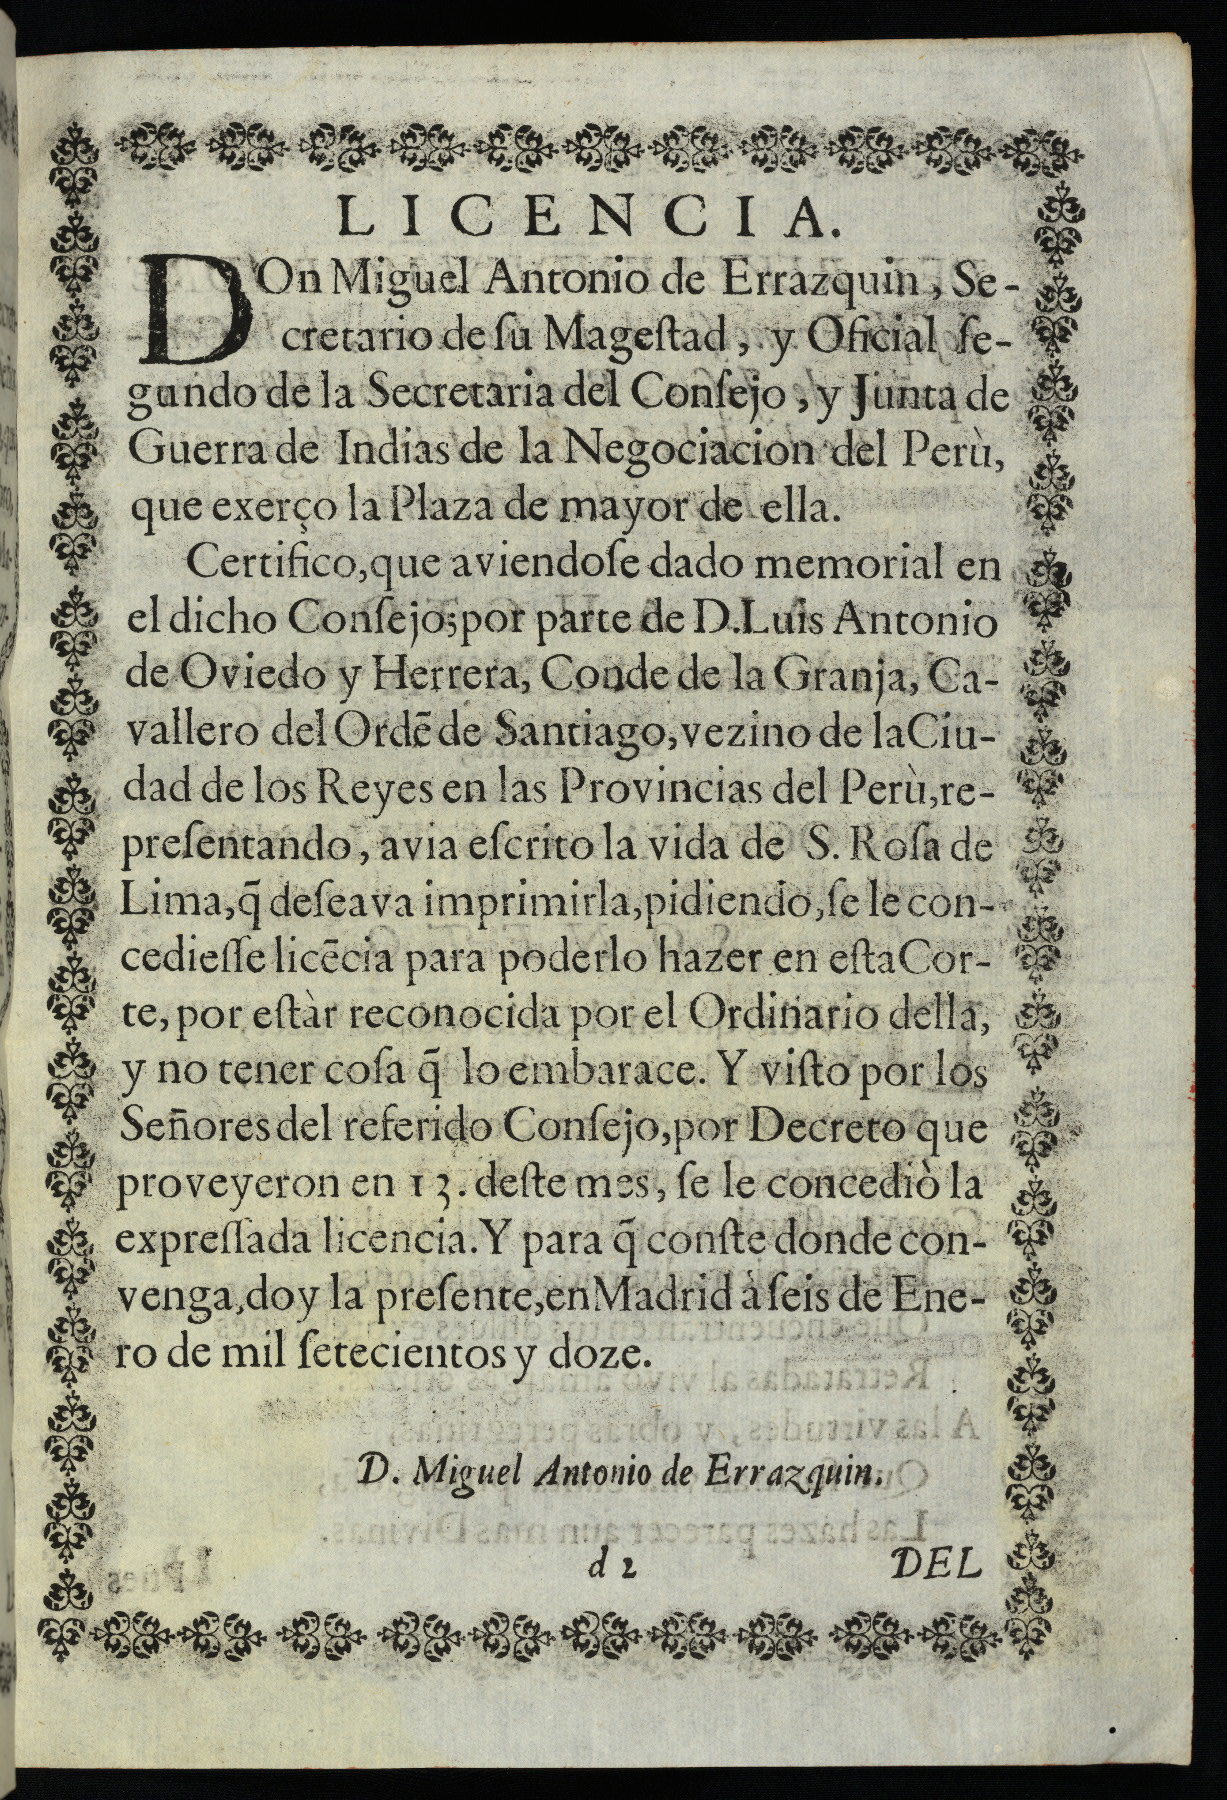 LICENCIA.
DOn Miguel Antonio de Errazquin, Se-
cretario de ſu Mageſtad, y Oficial ſe-
gundo de la Secretaria del Conſejo, y Junta de
Guerra de Indias de la Negociacion del Perù,
que exerço la Plaza de mayor de ella.
Certifico, que aviendoſe dado memorial en
el dicho Conſejo; por parte de D. Luis Antonio
de Oviedo y Herrera, Conde de la Granja, Ca-
vallero del Ordẽ de Santiago, vezino de la Ciu-
dad de los Reyes en las Provincias del Perù, re-
preſentando, avia eſcrito la vida de S. Roſa de
Lima, q̃ deſeava imprimirla, pidiendo, ſe le con-
cedieſſe licẽcia para poderlo hazer en eſta Cor-
te, por eſtàr reconocida por el Ordinario della,
y no tener coſa q̃ lo embarace. Y viſto por los
Señores del referido Conſejo, por Decreto que
proveyeron en 13. deſte mes, ſe le concediò la
expreſſada licencia. Y para q̃ conſte donde con-
venga, doy la preſente, en Madrid à ſeis de Ene-
ro de mil ſetecientos y doze.
D. Miguel Antonio de Errazquin.
d 2 DEL